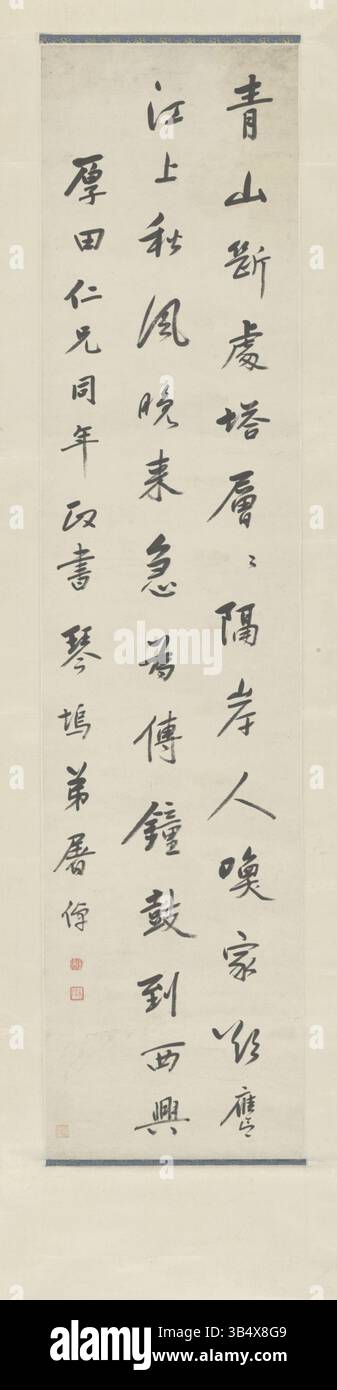 青山斷處塔層〻隔岸人喚家欲譍
江上秋風晚来急為傳鐘鼓到西興
厚田仁兄同年政書琴塢弟屠倬
alamy
Image ID: 3B4X8G9
www.alamy.com